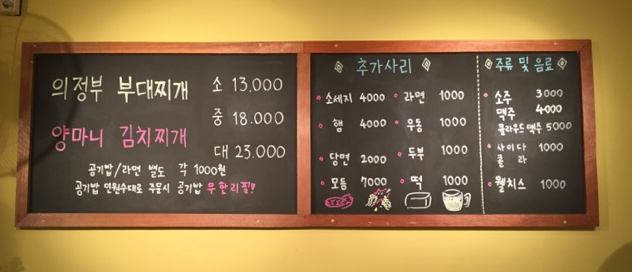 의정부 부대찌개
양마니 김치찌개
소 13.000
중 18.000
대 23.000
공기밥/라면 별도 각 1000원
공기밥 인원수대로 주문시 공기밥 무한리필!!
추가사리
소세지 4000
라면 1000
햄 4000
우동 1000
당면 2000
두부 1000
모듬 7000
떡 1000
주류 및 음료
소주 3000
맥주 4000
클라우드맥주 5000
사이다
콜라 1000
웰치스 1000